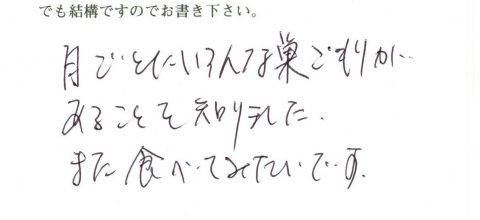 でも結構ですのでお書き下さい。
月ごとにいろんな巣ごもりが
あることを知りました。
また食べてみたいです。